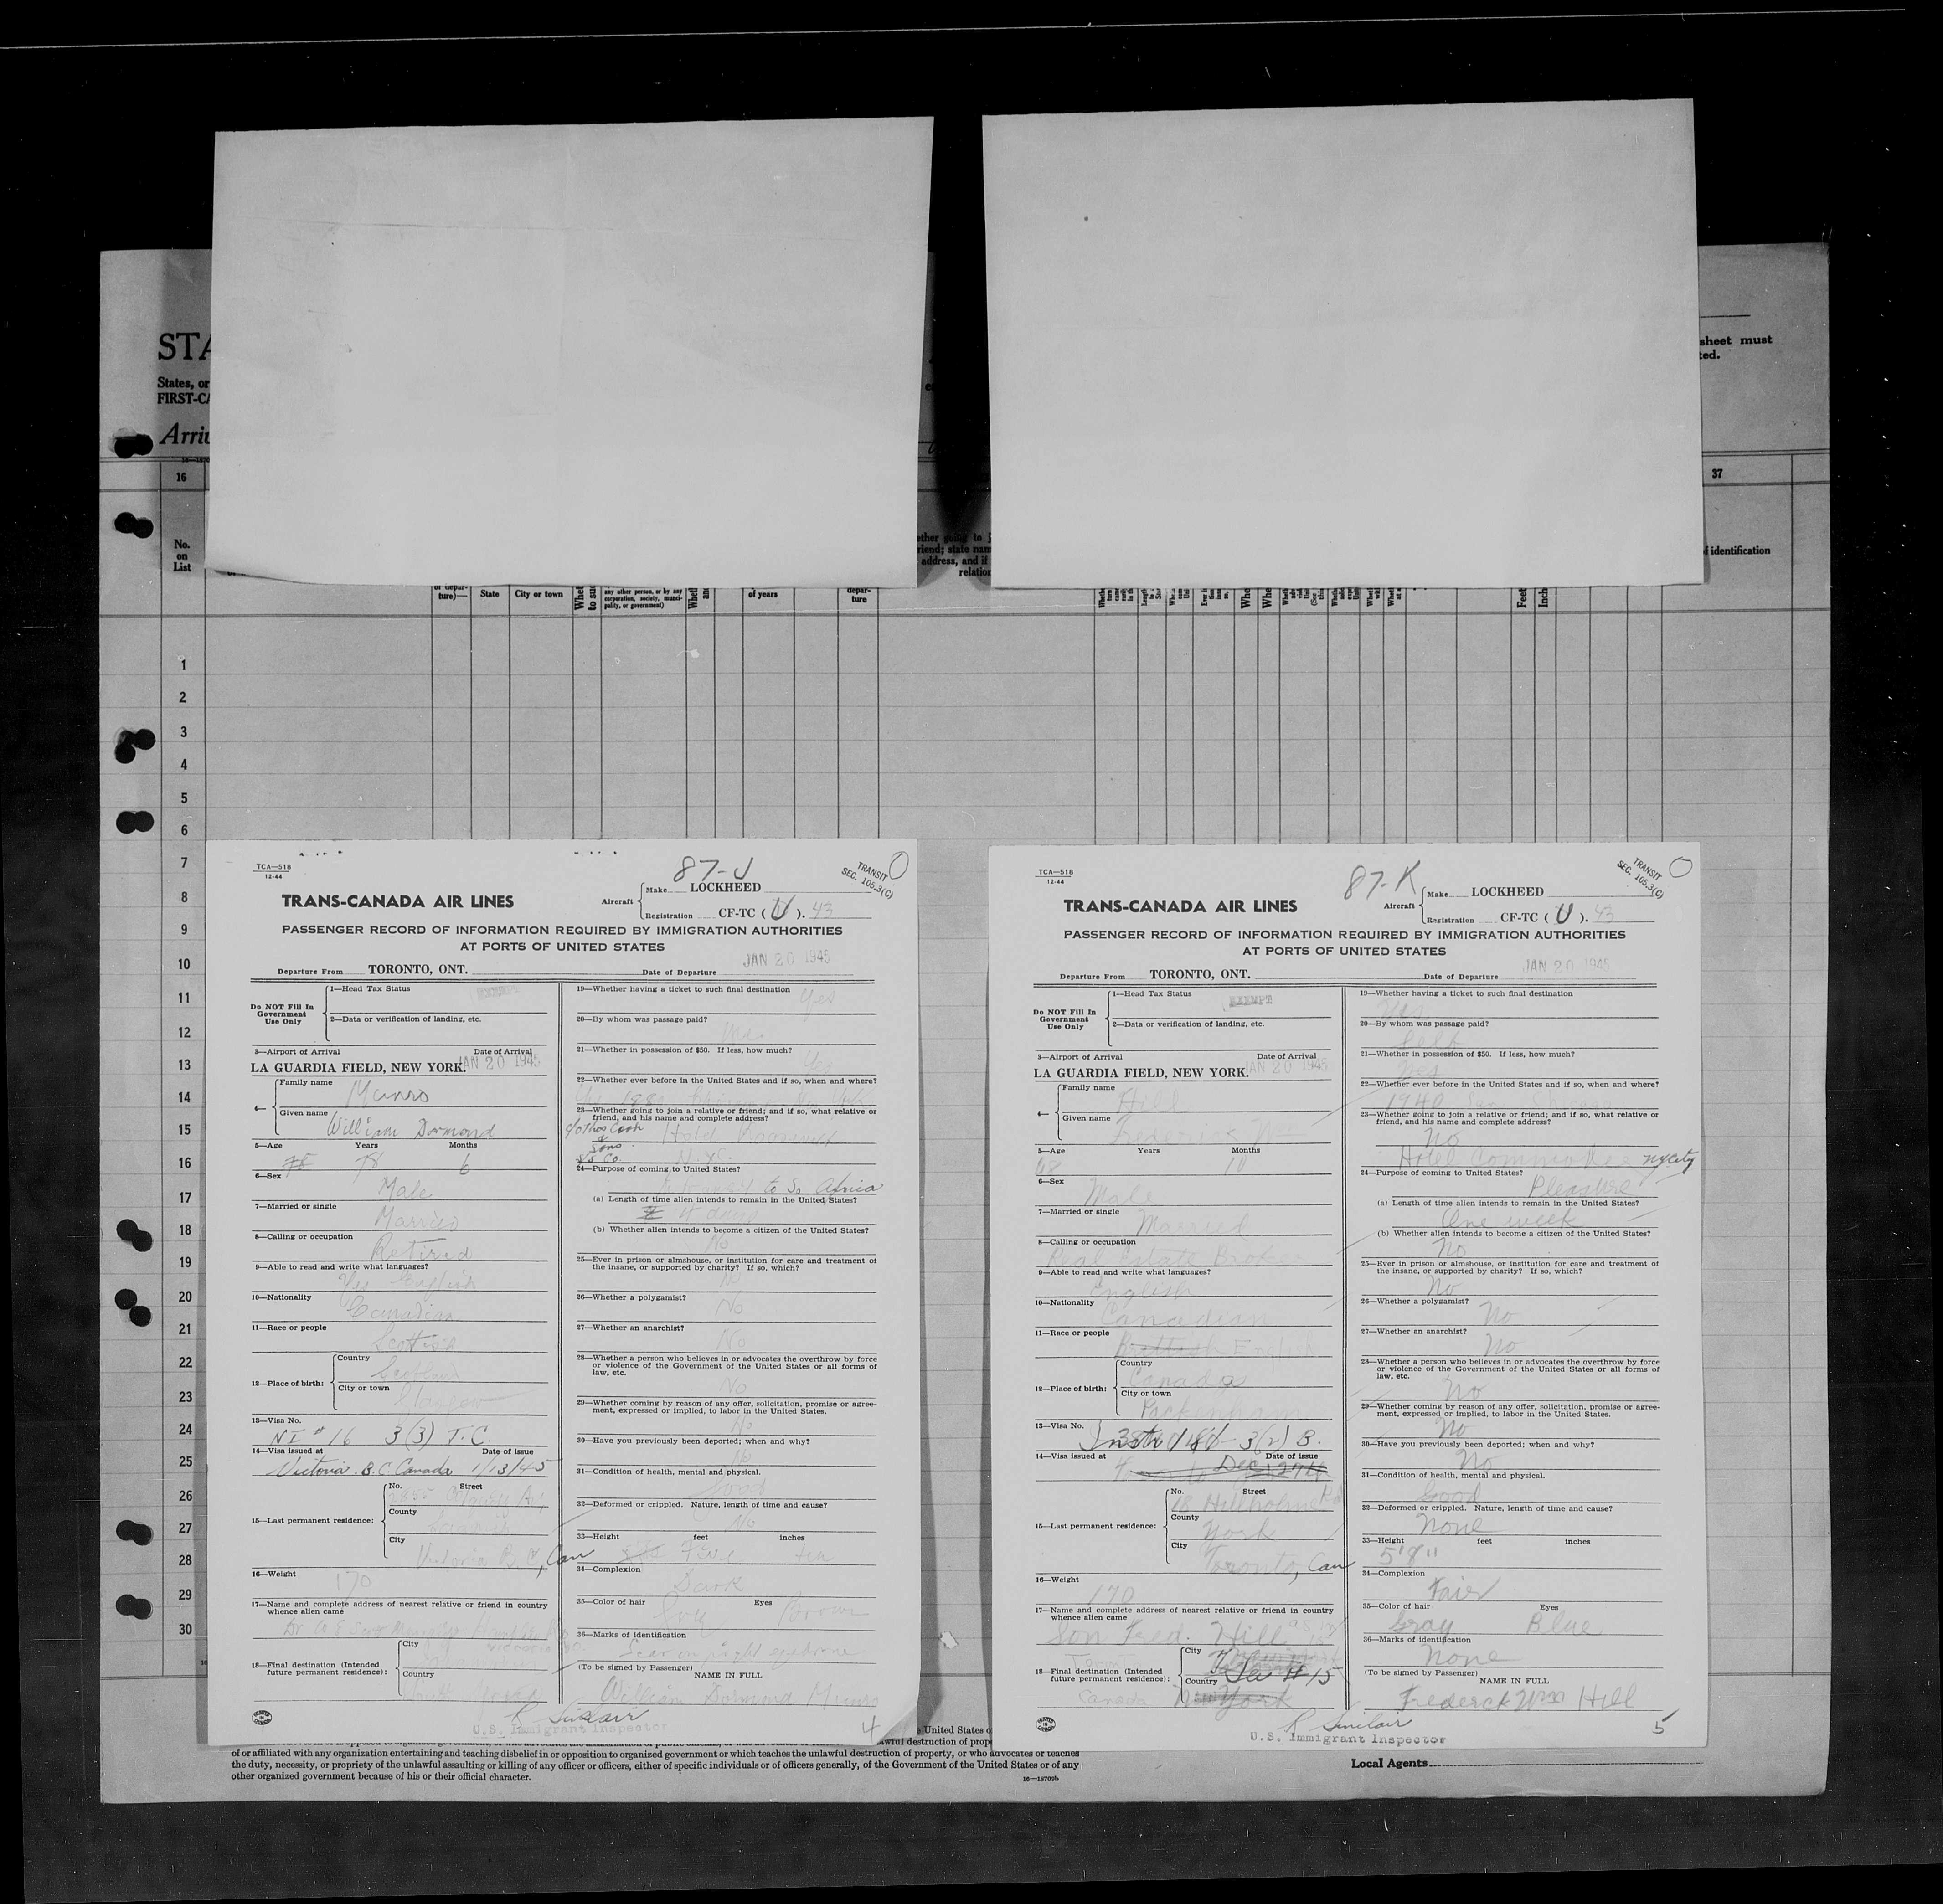 STA
States, or
FIRST-CA
Arriv
sheet must
ted.
16
37
No.
on
List
ether going to j
riend; state nam
address, and if
relation
f identification
or depar-
ture)—
State
City or town
Whet
to su
any other person, or by any
corporation, society, munici-
pality, or government)
Whetl
an
of years
depar-
ture
Feet
Inch
1
2
3
4
5
6
7
8
9
10
11
12
13
14
15
16
17
18
19
20
21
22
23
24
25
26
27
28
29
30
TCA—518
12-44
87-J
TRANSIT
SEC. 105.3(C)
TRANS-CANADA AIR LINES
Aircraft
Make LOCKHEED
Registration CF-TC ( U ). 43
PASSENGER RECORD OF INFORMATION REQUIRED BY IMMIGRATION AUTHORITIES
AT PORTS OF UNITED STATES
Departure From TORONTO, ONT. Date of Departure JAN 20 1945
Do NOT Fill In
Government
Use Only
1—Head Tax Status EXEMPT
2—Data or verification of landing, etc.
3—Airport of Arrival Date of Arrival
LA GUARDIA FIELD, NEW YORK. JAN 20 1945
4—
Family name Munro
Given name William Dormond
5—Age Years Months
78 78 6
6—Sex
Male
7—Married or single
Married
8—Calling or occupation
Retired
9—Able to read and write what languages?
Yes English
10—Nationality
Canadian
11—Race or people
Scottish
12—Place of birth:
Country
Scotland
City or town
Glasgow
13—Visa No.
NI # 16 3(3) T.C.
14—Visa issued at Date of issue
Victoria. B.C. Canada 1/13/45
15—Last permanent residence:
No. Street
County
City
Victoria B.C., Can
16—Weight
170
17—Name and complete address of nearest relative or friend in country
whence alien came
18—Final destination (Intended
future permanent residence):
City
Country
19—Whether having a ticket to such final destination
Yes
20—By whom was passage paid?
21—Whether in possession of $50. If less, how much?
Yes
22—Whether ever before in the United States and if so, when and where?
23—Whether going to join a relative or friend; and if so, what relative or
friend, and his name and complete address?
c/o Thos Cook
&
Sons
Hotel Roosevelt
24—Purpose of coming to United States?
to So Africa
(a) Length of time alien intends to remain in the United States?
days
(b) Whether alien intends to become a citizen of the United States?
No
25—Ever in prison or almshouse, or institution for care and treatment of
the insane, or supported by charity? If so, which?
No
26—Whether a polygamist?
No
27—Whether an anarchist?
No
28—Whether a person who believes in or advocates the overthrow by force
or violence of the Government of the United States or all forms of
law, etc.
No
29—Whether coming by reason of any offer, solicitation, promise or agree-
ment, expressed or implied, to labor in the United States.
No
30—Have you previously been deported; when and why?
No
31—Condition of health, mental and physical.
Good
32—Deformed or crippled. Nature, length of time and cause?
No
33—Height feet inches
Five ten
34—Complexion
Dark
35—Color of hair Eyes
Grey Brown
36—Marks of identification
Scar on right eyebrow
(To be signed by Passenger)
NAME IN FULL
William Dormond Munro
R Sinclair
U.S. Immigrant Inspector
4
TCA—518
12-44
87-K
TRANSIT
SEC. 105.3(C)
TRANS-CANADA AIR LINES
Aircraft
Make LOCKHEED
Registration CF-TC ( U ). 43
PASSENGER RECORD OF INFORMATION REQUIRED BY IMMIGRATION AUTHORITIES
AT PORTS OF UNITED STATES
Departure From TORONTO, ONT. Date of Departure JAN 20 1945
Do NOT Fill In
Government
Use Only
1—Head Tax Status EXEMPT
2—Data or verification of landing, etc.
3—Airport of Arrival Date of Arrival
LA GUARDIA FIELD, NEW YORK. JAN 20 1945
4—
Family name
Hill
Given name
Frederick Wm
5—Age Years Months
68 10
6—Sex
Male
7—Married or single
Married
8—Calling or occupation
Real Estate Broker
9—Able to read and write what languages?
English
10—Nationality
Canadian
11—Race or people
British English
12—Place of birth:
Country
Canada
City or town
13—Visa No.
3(2) B.
14—Visa issued at Date of issue
Dec
15—Last permanent residence:
No. Street
18 Hillholm Rd
County
York
City
Toronto, Can
16—Weight
170
17—Name and complete address of nearest relative or friend in country
whence alien came
Son Fred. Hill
18—Final destination (Intended
future permanent residence):
City
Country
Canada New York
19—Whether having a ticket to such final destination
Yes
20—By whom was passage paid?
Self
21—Whether in possession of $50. If less, how much?
Yes
22—Whether ever before in the United States and if so, when and where?
1940 Chicago
23—Whether going to join a relative or friend; and if so, what relative or
friend, and his name and complete address?
No
Hotel Commodore NYCity
24—Purpose of coming to United States?
Pleasure
(a) Length of time alien intends to remain in the United States?
One week
(b) Whether alien intends to become a citizen of the United States?
No
25—Ever in prison or almshouse, or institution for care and treatment of
the insane, or supported by charity? If so, which?
No
26—Whether a polygamist?
No
27—Whether an anarchist?
No
28—Whether a person who believes in or advocates the overthrow by force
or violence of the Government of the United States or all forms of
law, etc.
No
29—Whether coming by reason of any offer, solicitation, promise or agree-
ment, expressed or implied, to labor in the United States.
No
30—Have you previously been deported; when and why?
No
31—Condition of health, mental and physical.
Good
32—Deformed or crippled. Nature, length of time and cause?
None
33—Height feet inches
5'8"
34—Complexion
Fair
35—Color of hair Eyes
Gray Blue
36—Marks of identification
None
(To be signed by Passenger)
NAME IN FULL
Frederick Wm Hill
R Sinclair
U.S. Immigrant Inspector
5
United States o
awful destruction of prope
of or affiliated with any organization entertaining and teaching disbelief in or opposition to organized government or which teaches the unlawful destruction of property, or who advocates or teaches
the duty, necessity, or propriety of the unlawful assaulting or killing of any officer or officers, either of specific individuals or of officers generally, of the Government of the United States or of any
other organized government because of his or their official character.
16—18709b
Local Agents